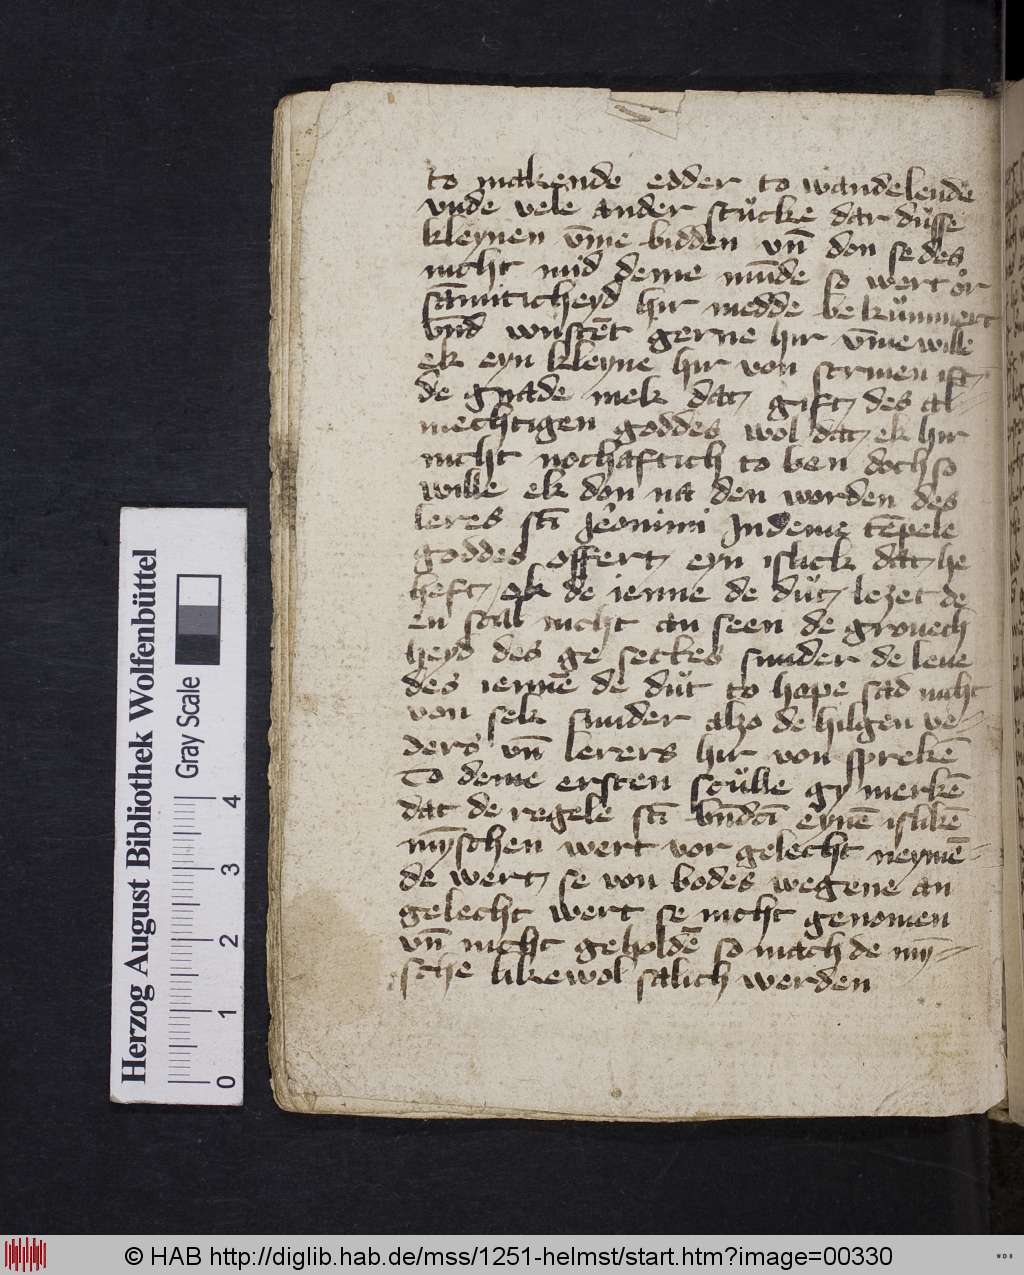 to makende edder to wandelende
vnde vele ander stücke dar düsse
kleynen v̄me bidden vn̄ don se des
nicht myd deme mūde so wert or
hir medde bekümmert
vn̄d wüstēt gerne hir v̄me wille
ek eyn kleyne hir von scriuen ist
de gnade mek dat gift des al-
mechtigen goddes wol dat ek hir
nicht nochaftich to ben doch so
wille ek don na den worden des
leres sc̄i Jeōnimi Jn deme tēpele
goddes offert eyn islick dat he
heft ek de ienne de düt lezet de
en scal nicht an seen de grouech
heyd des ge seckes sunder de leue
des iennē de düt to hope sad nicht
von sek sunder alzo de hilgen ve-
ders vn̄ lerers hir von sprekē
To deme ersten scülle gy merkē
dat de regele sc̄i eynē islikē
mȳschen wert vor gelecht neymē-
de wert se von bodes wegene an
gelecht wert se nicht genomen
vn̄ nicht geholdē so mach de mȳ-
sche likewol salich werden
Herzog August Bibliothek Wolfenbüttel
Gray Scale
0 1 2 3 4
© HAB http://diglib.hab.de/mss/1251-helmst/start.htm?image=00330